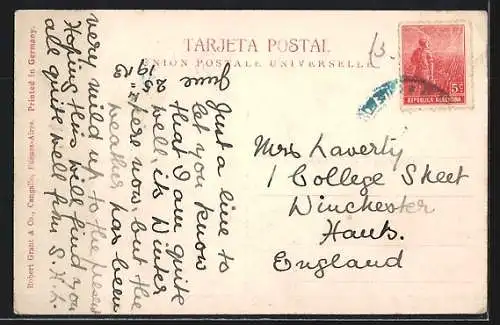 TARJETA POSTAL
UNION POSTALE UNIVERSELLE
13.
5 C
REPUBLICA ARGENTINA
June
25th
1913
Just a line to
let you know
that I am quite
well, its Winter
here now, but the
weather has been
very mild up to the present
Hoping this will find you
all quite well from S.H.L.
Mrs Laverty
1 College Street
Winchester
Hants.
England
Robert Grant & Co., Cangallo, Buenos-Aires. Printed in Germany.